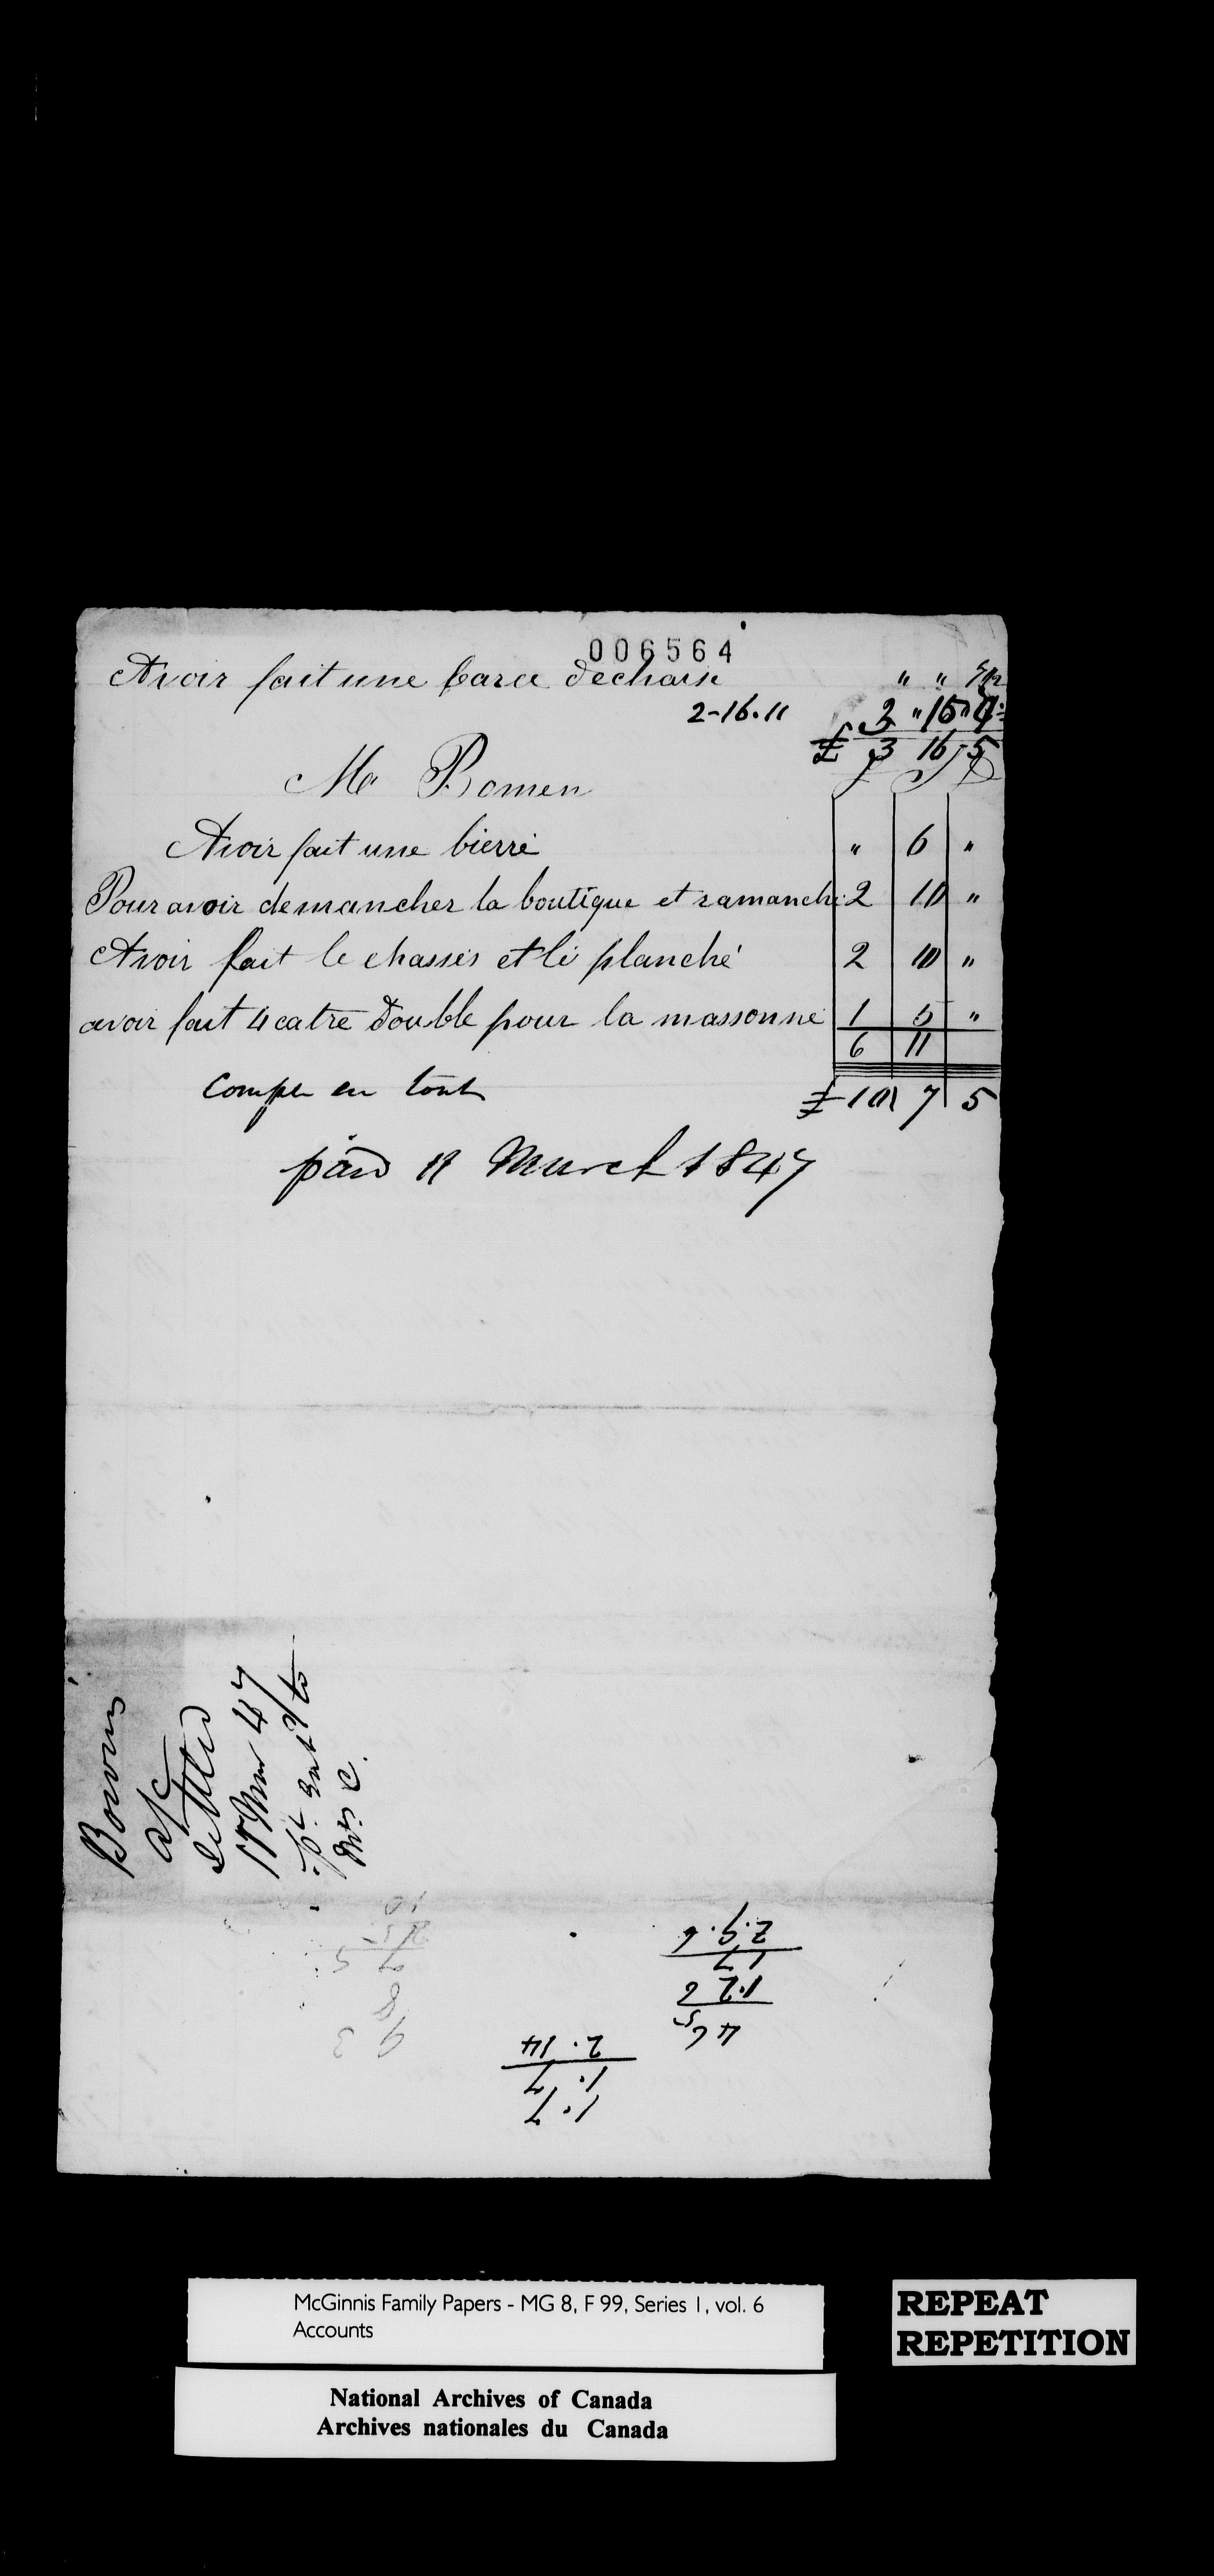 006564
Avoir fait une barre de chaise " "
2-16.11 3 " 15 "
£ 3 16 5
Mr Bomen
Avoir fait une bierre " 6 "
Pour avoir demancher la boutique et ramanche 2 10 "
Avoir fait le chassis et le planché 2 10 "
avoir fait 4 catre double pour la massonne 1 5 "
6 11
Compte en tout £ 10 7 5
paid 11 March 1847
Bowens
a/c
settled
11 Mar 47
Mr C.
1.7
1.7
2.14
4 6 5
1.2 6
17
2.9.6
9 3
8
7 5
10
McGinnis Family Papers - MG 8, F 99, Series 1, vol. 6
Accounts
National Archives of Canada
Archives nationales du Canada
REPEAT
REPETITION